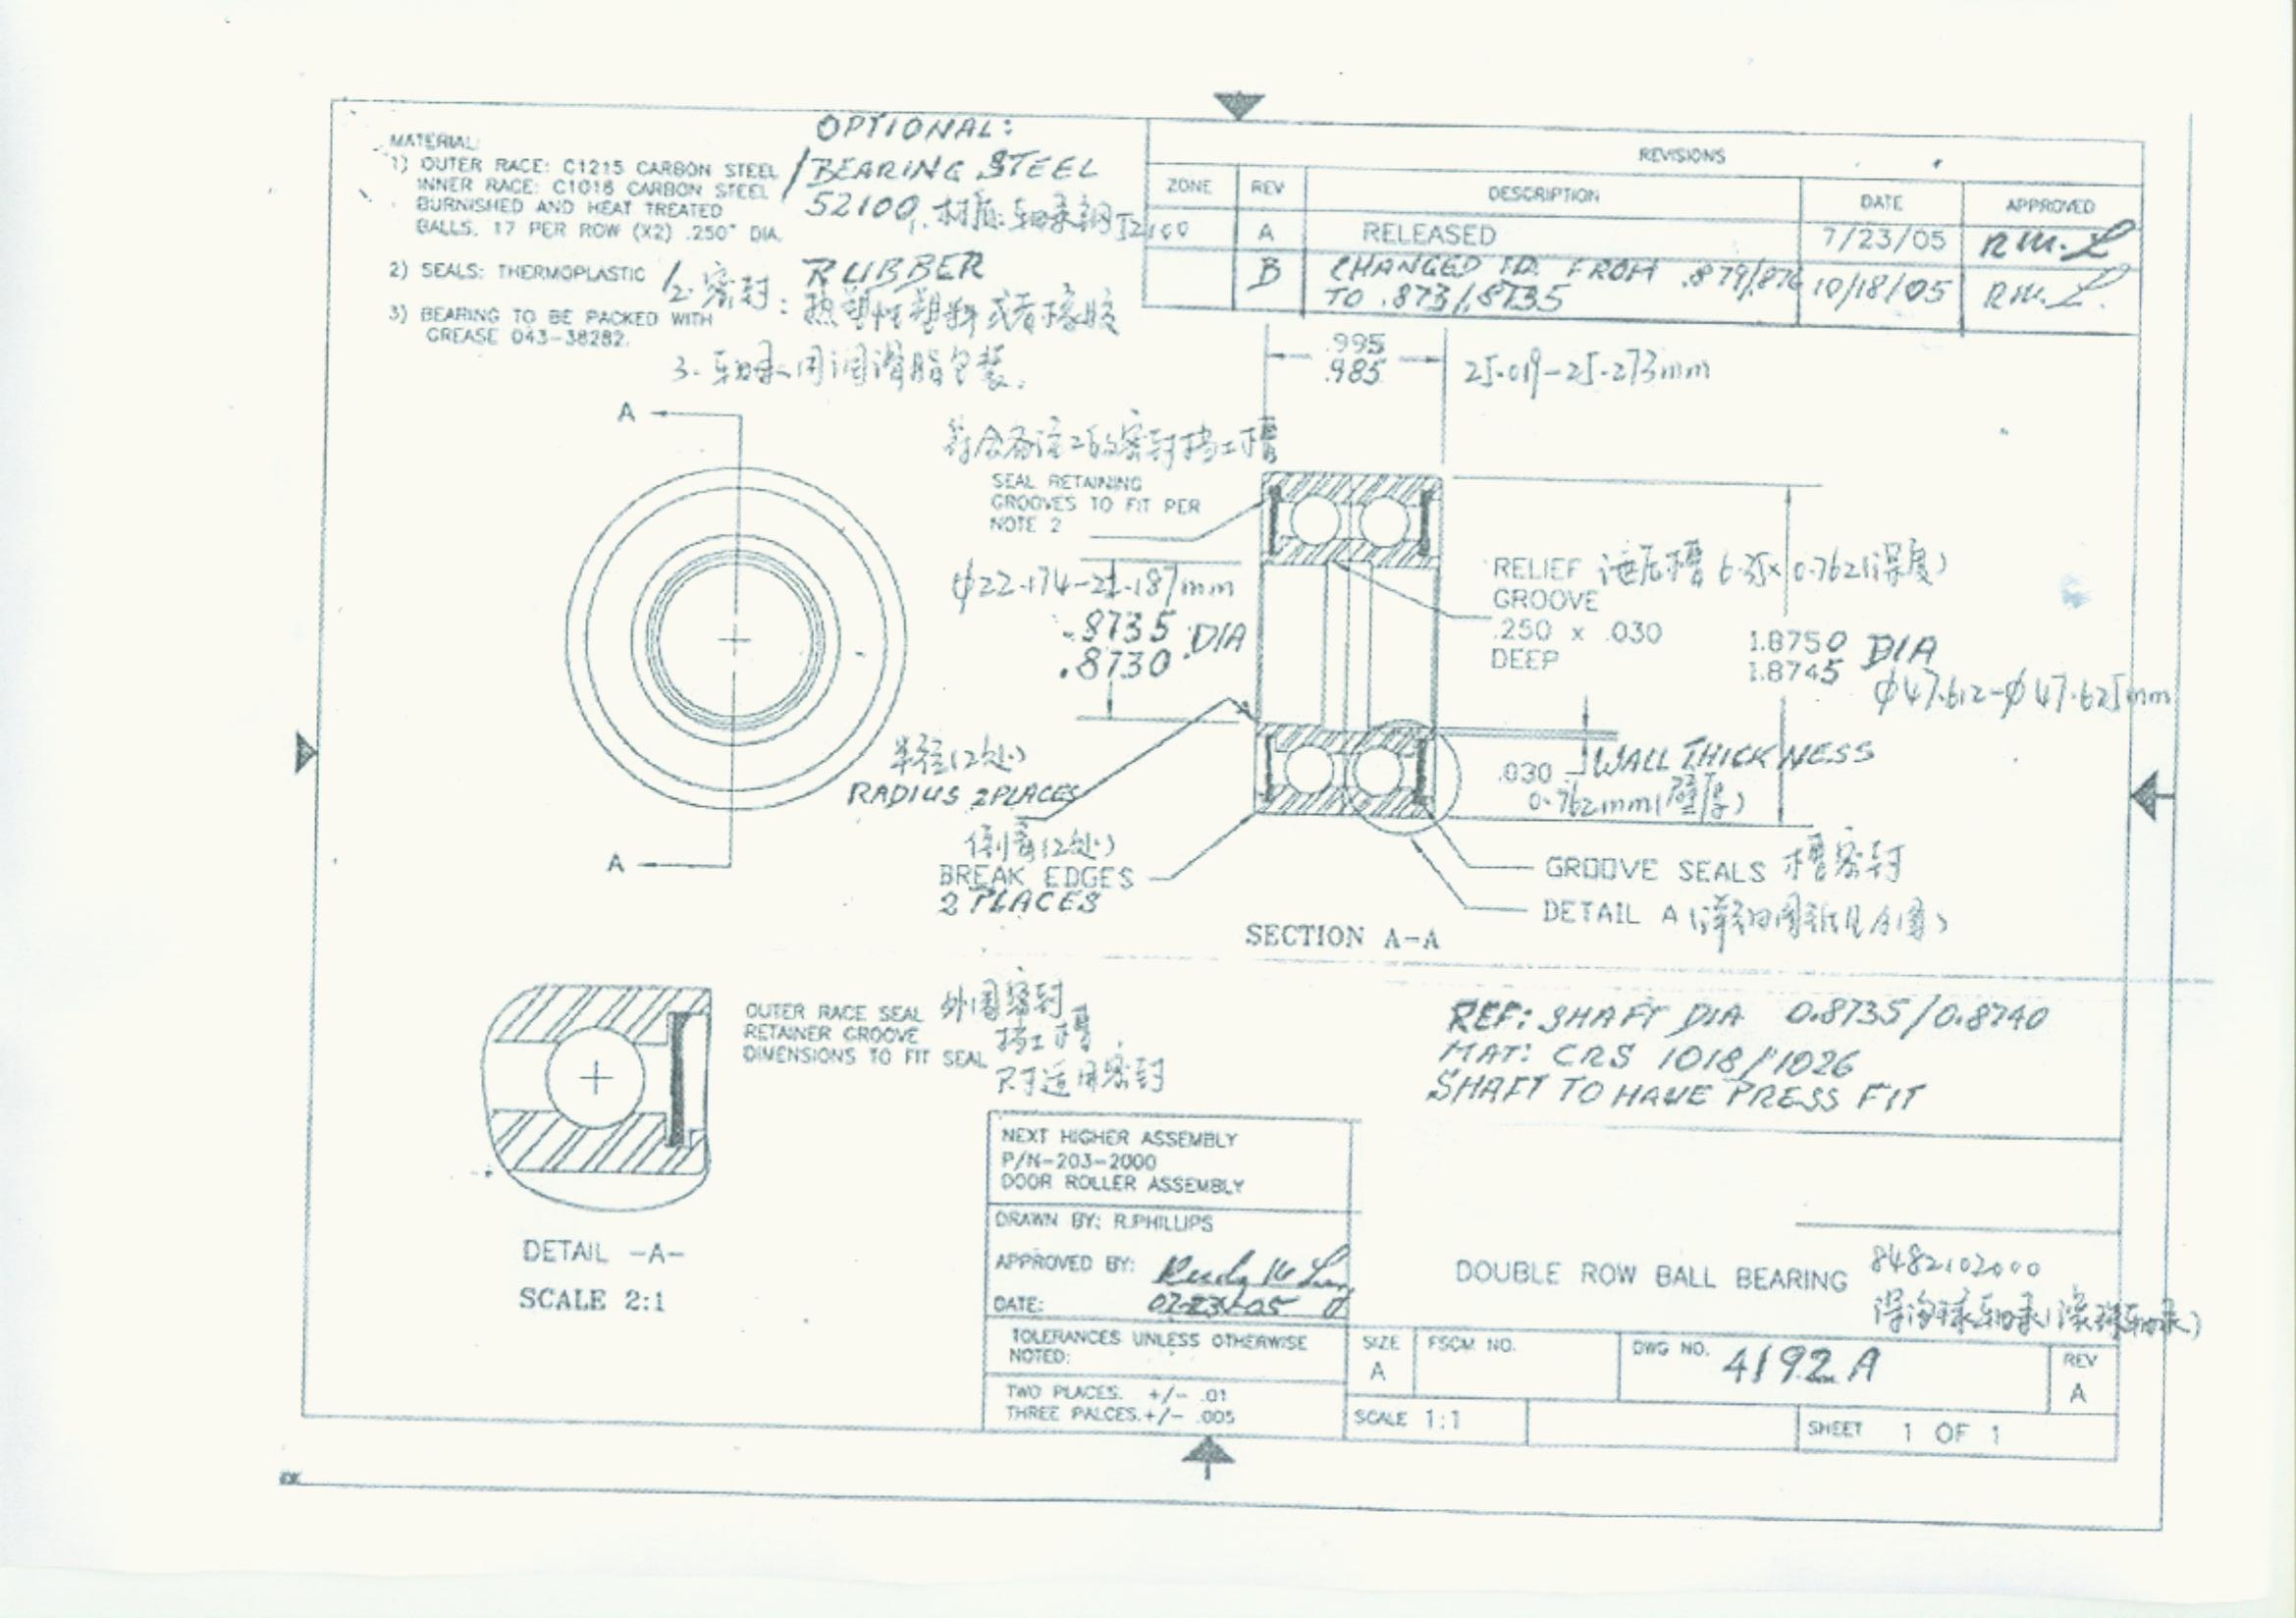 MATERIAL:
1) OUTER RACE: C1215 CARBON STEEL
INNER RACE: C1018 CARBON STEEL
BURNISHED AND HEAT TREATED
BALLS, 17 PER ROW (X2) .250" DIA.
2) SEALS: THERMOPLASTIC
3) BEARING TO BE PACKED WITH
GREASE 043-38282.
OPTIONAL:
/BEARING STEEL
52100, 材质:轴承钢52100
/ RUBBER
2.密封:热塑性塑料或者橡胶
3.轴承用润滑脂包装.
REVISIONS
ZONE REV DESCRIPTION DATE APPROVED
A RELEASED 7/23/05 RM.L
B CHANGED I.D. FROM .879/.876 10/18/05 RM.L.
TO .873/.8735
.995
.985
25.019-25.273mm
A
符合备注2的密封挡圈槽
SEAL RETAINING
GROOVES TO FIT PER
NOTE 2
φ22.174-22.187mm
.8735 DIA
.8730
RELIEF 泄压槽 6.35x0.762(深度)
GROOVE
.250 x .030
DEEP
1.8750 DIA
1.8745
φ47.612-φ47.625mm
半径(2处)
RADIUS 2PLACES
.030 WALL THICKNESS
0.762mm(壁厚)
倒角(2处)
BREAK EDGES
2 PLACES
A
GROOVE SEALS 槽密封
DETAIL A
SECTION A-A
OUTER RACE SEAL
RETAINER GROOVE
DIMENSIONS TO FIT SEAL
外圈密封
尺寸适用密封
REF: SHAFT DIA 0.8735/0.8740
MAT: CRS 1018/1026
SHAFT TO HAVE PRESS FIT
DETAIL -A-
SCALE 2:1
NEXT HIGHER ASSEMBLY
P/N-203-2000
DOOR ROLLER ASSEMBLY
DRAWN BY: R.PHILLIPS
APPROVED BY:
DATE: 07-23-05
DOUBLE ROW BALL BEARING
8482102000
深沟球轴承(滚珠轴承)
TOLERANCES UNLESS OTHERWISE
NOTED:
TWO PLACES. +/- .01
THREE PALCES.+/- .005
SIZE
A
FSCM NO.
DWG NO. 4192A
REV
A
SCALE 1:1
SHEET 1 OF 1